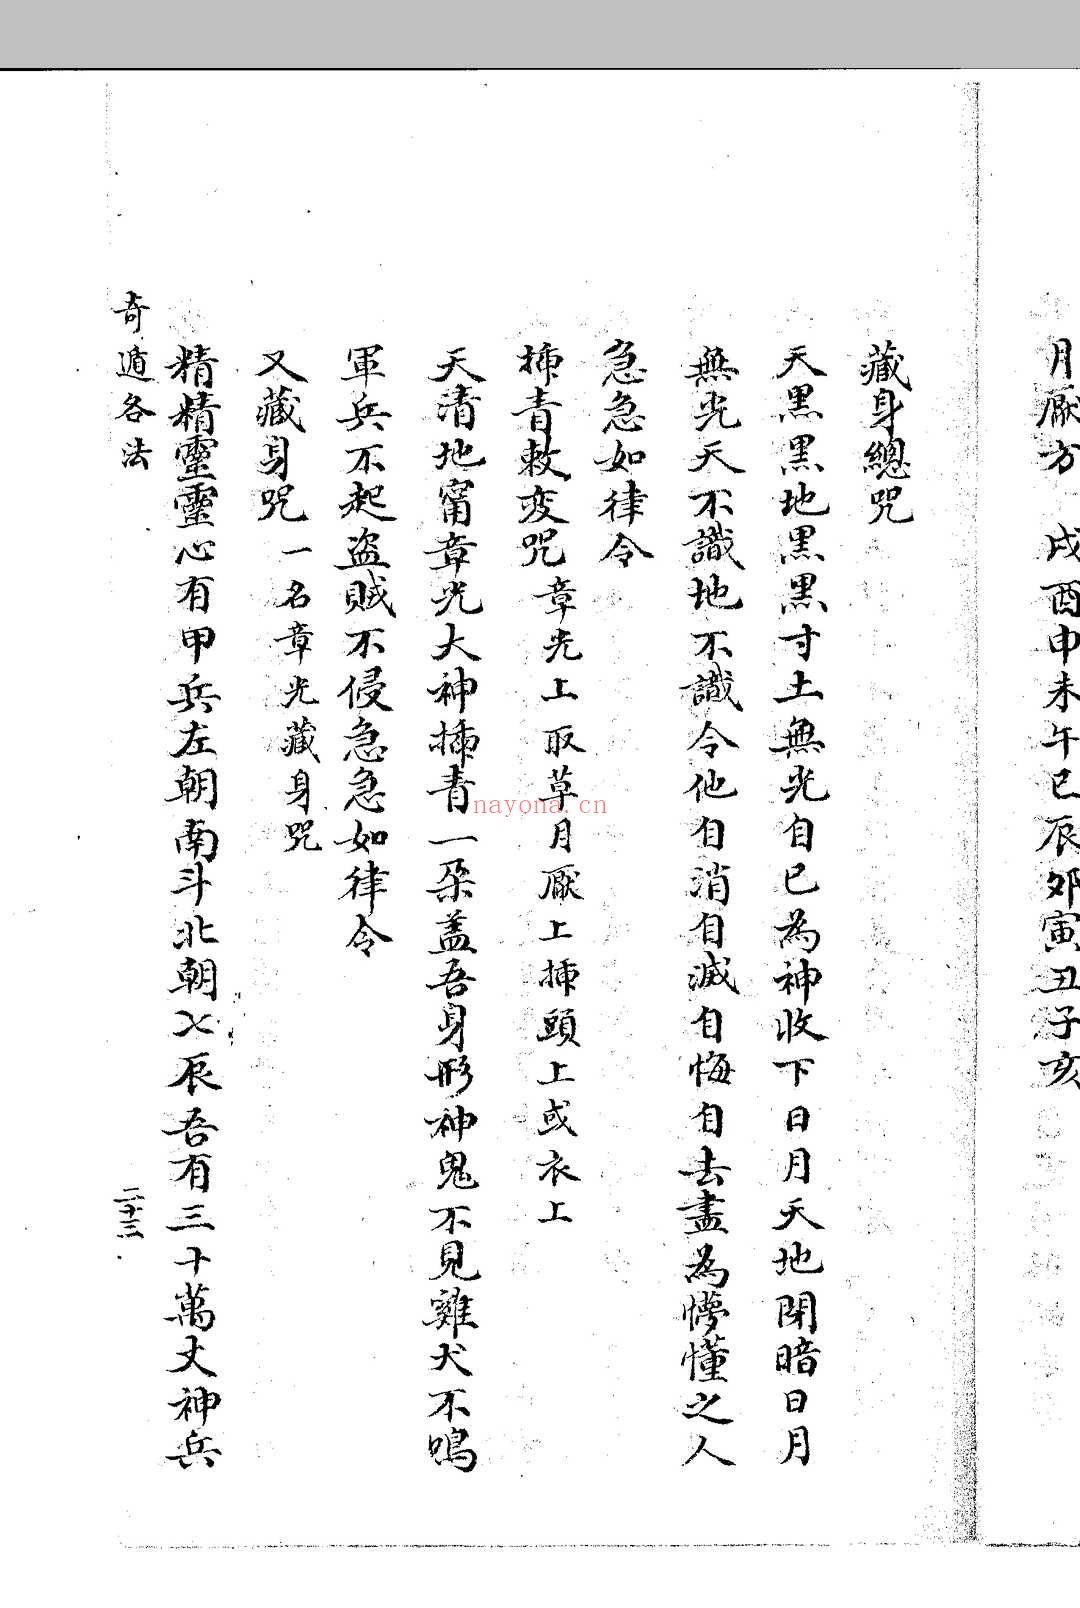 月厭方　戌酉申未午巳辰卯寅丑子亥
藏身總咒
天黑黑地黑黑寸土無光自己為神收下日月天地閉暗日月
無光天不識地不識令他自消自滅自悔自去盡為懜懂之人
急急如律令
揷青敕变咒 章光上取草月厭上揷頭上或衣上
天清地甯章光大神揷青一朶盖吾身形神鬼不見雞犬不鳴
軍兵不起盜賊不侵急急如律令
又藏身咒 一名章光藏身咒
精精靈靈心有甲兵左朝南斗北朝七辰吾有三十萬丈神兵
奇遁各法
二十三
nayona.cn